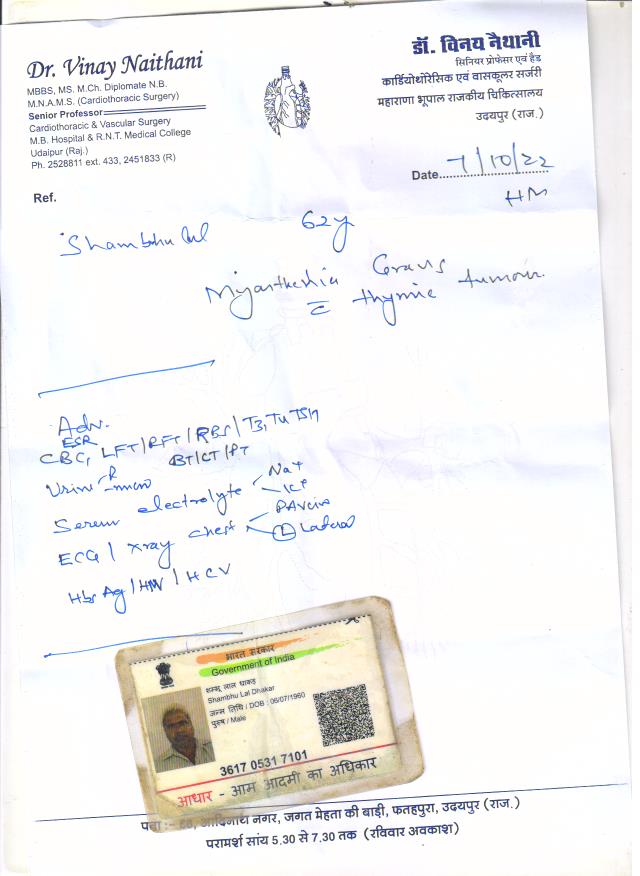 Dr. Vinay Naithani
MBBS, MS. M.Ch. Diplomate N.B.
M.N.A.M.S. (Cardiothoracic Surgery)
Senior Professor
Cardiothoracic & Vascular Surgery
M.B. Hospital & R.N.T. Medical College
Udaipur (Raj.)
Ph. 2528811 ext. 433, 2451833 (R)
डॉ. विनय नैथानी
सिनियर प्रोफेसर एवं हैड
कार्डियोथोरेसिक एवं वासकूलर सर्जरी
महाराणा भूपाल राजकीय चिकित्सालय
उदयपुर (राज.)
Date 7/10/22
HM
Ref.
Shambhu lal 62y
Myasthenia Gravis
c̄ thymic tumour.
Adv.
ESR
CBC, LFT/RFT/RBS/T3, T4 TSH
BT/CT/PT
Urine R micro
Serum electrolyte Na+
K+
ECG / xray chest PA view
(L) Lateral
Hbs Ag / HIV / HCV
भारत सरकार
Government of India
शम्भू लाल धाकड़
Shambhu Lal Dhakar
जन्म तिथि / DOB : 06/07/1960
पुरुष / Male
3617 0531 7101
आधार - आम आदमी का अधिकार
पता :- आदिनाथ नगर, जगत मेहता की बाड़ी, फतहपुरा, उदयपुर (राज.)
परामर्श सांय 5.30 से 7.30 तक (रविवार अवकाश)